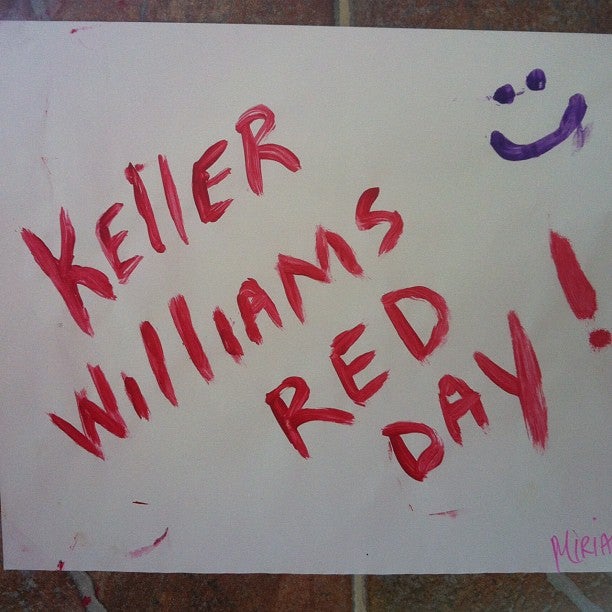 Keller
Williams
RED
DAY!
MIRIA